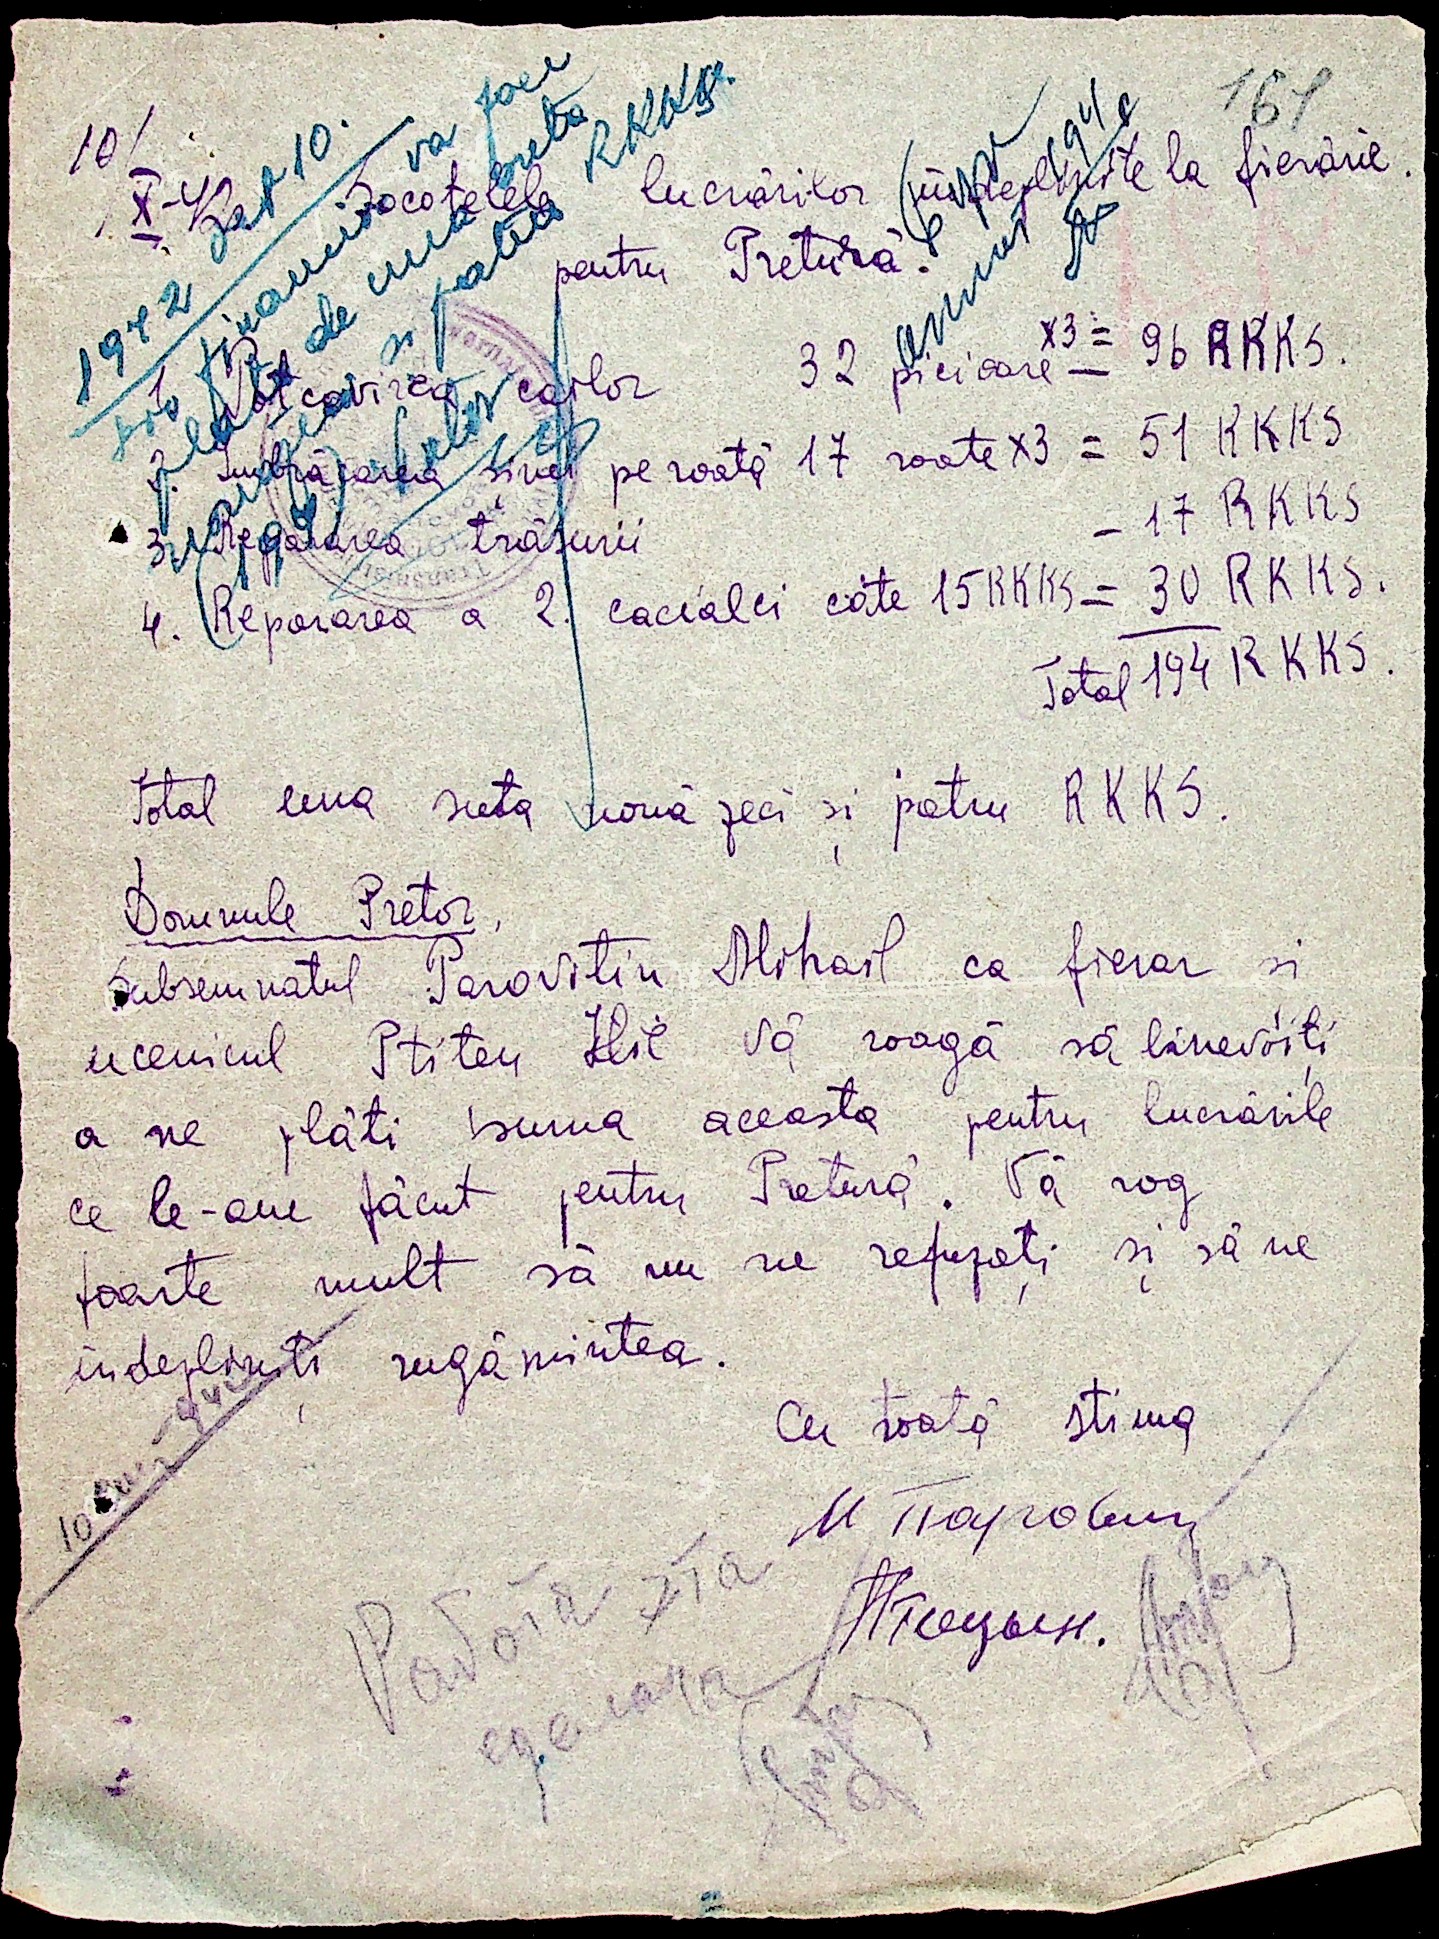 161
10/X-42
Socotelele lucrărilor îndeplinite la fierărie.
pentru Pretură.
1. Potcovirea cailor 32 picioare x3 = 96 RKKS.
2. Îmbrăcarea șinei pe roată 17 roate x3 = 51 RKKS
3. Repararea trăsurii – 17 RKKS
4. Repararea a 2. caciălci câte 15 RKKS = 30 RKKS.
Total 194 RKKS.
1942 10.
va face
de una suta
și patru RKKS.
(194)
Total una suta nouă zeci și patru RKKS.
Domnule Pretor,
Subsemnatul Parovitin Mihail ca fierar si
ucenicul Ptiten Ilie Vă roagă să binevoiți
a ne plăti suma aceasta pentru lucrările
ce le-am făcut pentru Pretură. Vă rog
foarte mult să nu ne refuzați și să ne
îndepliniți rugămintea.
Cu toată stima
10
Работа эта
сделана